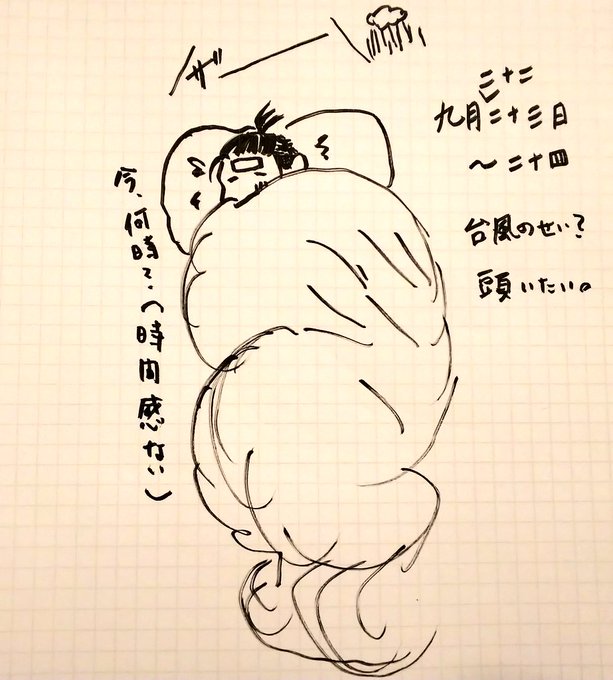 ザー
二十二
九月二十三日
〜二十四
台風のせい?
頭いたい。
今、何時?(時間感ない)